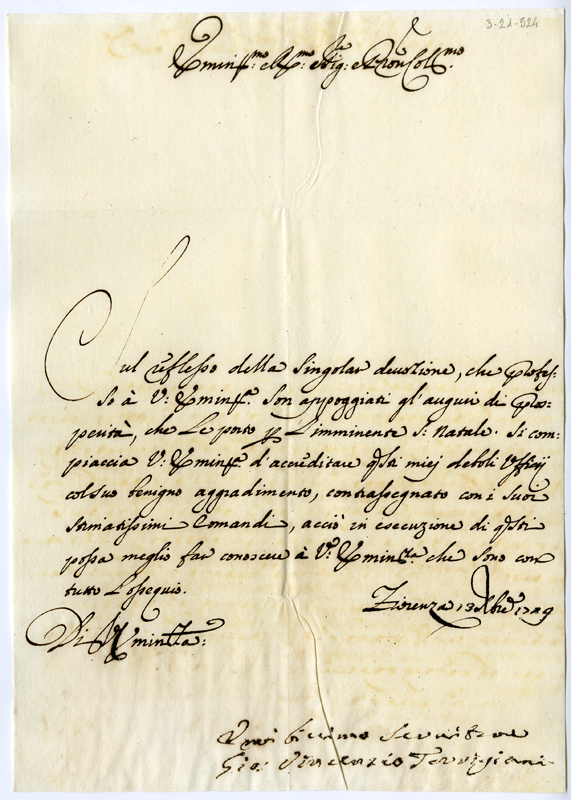 3-21-524
Emin.mo e R.mo Sig.re e Pron Coll.mo
Sul reflesso della singolar devozione, che profes-
so à V: Emin.a son appoggiati gl'auguri di pros-
perità, che Le porto p L'imminente S: Natale. Si com-
piaccia V: Emin.a d'accreditare q.sti miej deboli Uffizij
col suo benigno aggradimento, contrassegnato con i suoi
stimatissimi Comandi, acciò in esecuzione di q.sti
possa meglio far conoscere à V: Emin.za che sono con
tutto L'ossequio.
Fiorenza 13 Xbre
Di V. Eminza:
Umilissimo Servitore
Gio: Vincenzio Torrigiani